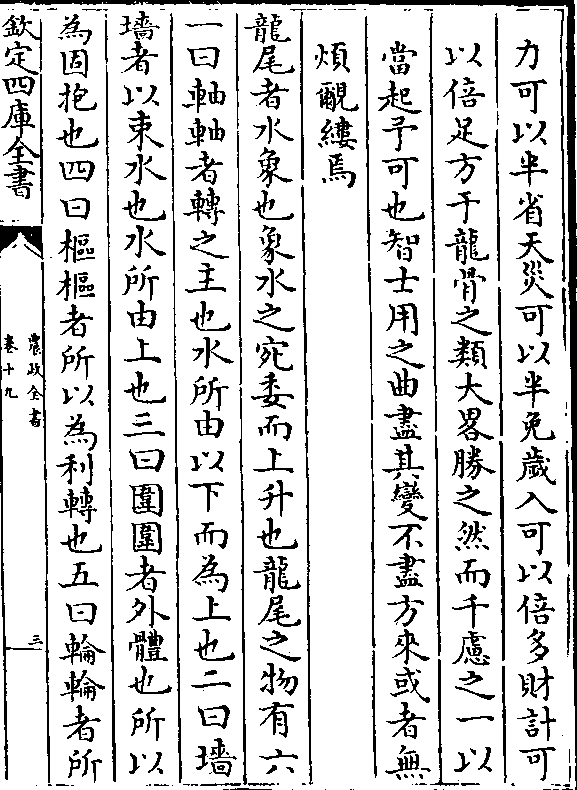 力可以半省天災可以半免歲入可以倍多財計可
以倍足方于龍骨之類大畧勝之然而千慮之一以
當起予可也智士用之曲盡其變不盡方來或者無
煩覼縷焉
龍尾者水象也象水之宛委而上升也龍尾之物有六
一曰軸軸者轉之主也水所由以下而為上也二曰墻
墻者以束水也水所由上也三曰圍圍者外體也所以
為固抱也四曰樞樞者所以為利轉也五曰輪輪者所
欽定四庫全書
農政全書
卷十九
三